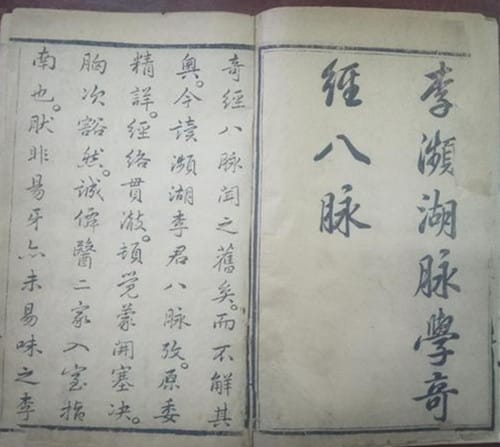 李瀕湖脉學奇
經八脉
奇經八脉闻之舊矣。而不解其
奥。今读瀕湖李君八脉攷。原委
精詳。經络貫澈。頓觉蒙開塞决。
胸次豁然。誠僊醫二家入室指
南也。肰非易牙亦未易味之李